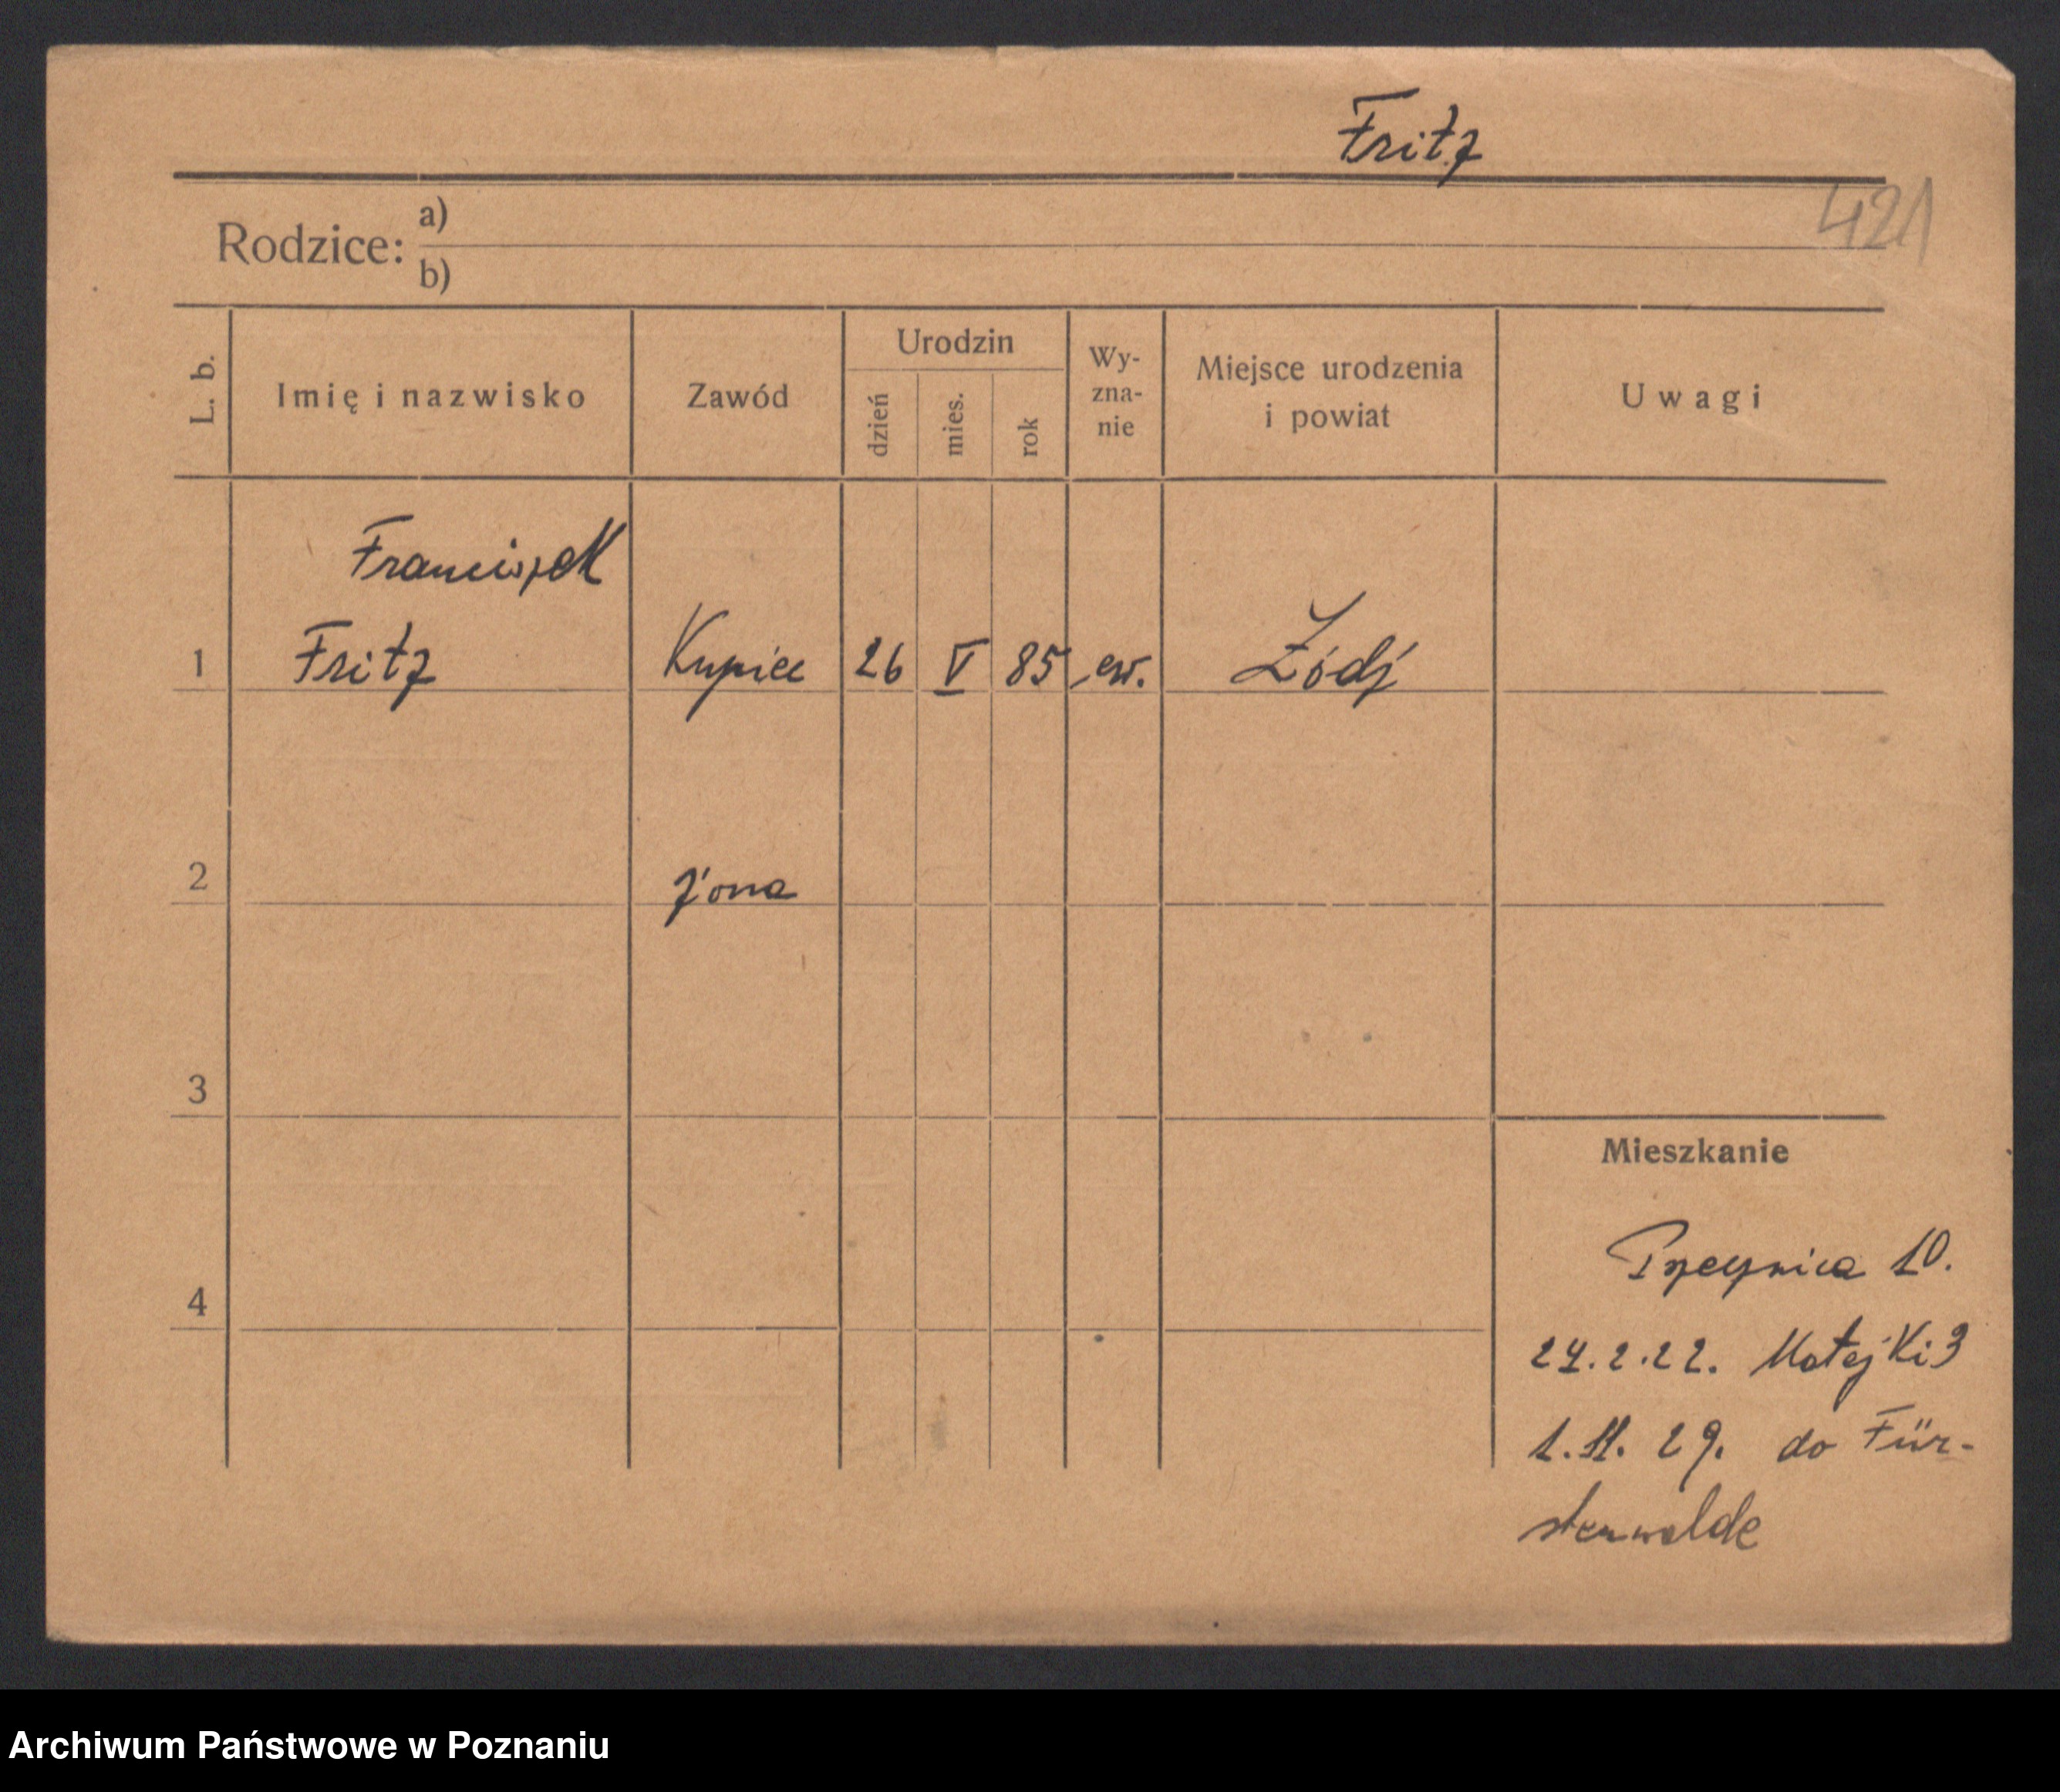 Fritz
421
Rodzice: a)
b)
L. b.
Imię i nazwisko
Zawód
Urodzin
dzień
mies.
rok
Wy-
zna-
nie
Miejsce urodzenia
i powiat
Uwagi
Franciszek
1 Fritz Kupiec 26 V 85 ew. Łódź
2 żona
3
Mieszkanie
4
10.
24.2.22. Matejki 3
1.11.29. do Für-
stenwalde
Archiwum Państwowe w Poznaniu